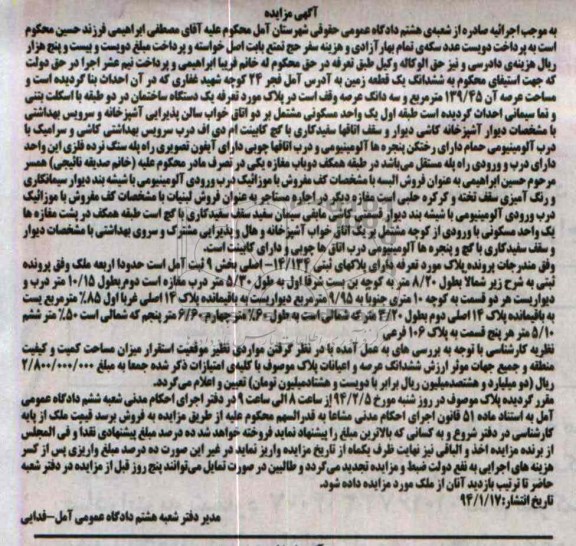 آگهی مزایده
به موجب اجرائیه صادره از شعبه‌ی هشتم دادگاه عمومی حقوقی شهرستان آمل محکوم علیه آقای مصطفی ابراهیمی فرزند حسین محکوم
است به پرداخت دویست عدد سکه‌ی تمام بهارآزادی و هزینه سفر حج تمتع بابت اصل خواسته و پرداخت مبلغ دویست و بیست و پنج هزار
ریال هزینه‌ی دادرسی و نیز حق الوکاله وکیل طبق تعرفه در حق محکوم له خانم فریبا ابراهیمی و پرداخت نیم عشر اجرا در حق دولت
که جهت استیفای محکوم به ششدانگ یک قطعه زمین به آدرس آمل فجر ۲۴ کوچه شهید غفاری که در آن احداث بنا گردیده است و
مساحت عرصه آن ۱۳۹/۴۵ مترمربع و سه دانگ عرصه وقف است در پلاک مورد تعرفه یک دستگاه ساختمان در دو طبقه با اسکلت بتنی
و نما سیمانی احداث گردیده است طبقه اول یک واحد مسکونی مشتمل بر دو اتاق خواب سالن پذیرایی آشپزخانه و سرویس بهداشتی
با مشخصات دیوار آشپزخانه کاشی دیوار و سقف اتاقها سفیدکاری با گچ کابینت ام دی اف درب سرویس بهداشتی کاشی و سرامیک با
درب آلومینیومی حمام دارای رختکن پنجره ها آلومینیومی و درب اتاقها چوبی دارای آیفون تصویری راه پله سنگ نرده فلزی این واحد
دارای درب و ورودی راه پله مستقل می‌باشد در طبقه همکف دوباب مغازه یکی در تصرف مادر محکوم علیه (خانم صدیقه نائیجی) همسر
مرحوم حسین ابراهیمی به عنوان فروش البسه با مشخصات کف مفروش با موزائیک درب ورودی آلومینیومی با شیشه بند دیوار سیمانکاری
و رنگ آمیزی سقف تخته و کرکره حلبی است مغازه دیگر در اجاره مستاجر به عنوان فروش لبنیات با مشخصات کف مفروش با موزائیک
درب ورودی آلومینیومی با شیشه بند دیوار قسمتی کاشی مابقی سیمان سفید سقف سفیدکاری با گچ است طبقه همکف در پشت مغازه ها
یک واحد مسکونی با ورودی از کوچه مشتمل بر یک اتاق خواب آشپزخانه و هال و پذیرایی مشترک و سروی بهداشتی با مشخصات دیوار
و سقف سفیدکاری با گچ و پنجره ها آلومینیومی درب اتاق ها چوبی و دارای کابینت است.
وفق مندرجات پرونده پلاک مورد تعرفه دارای پلاکهای ثبتی ۱۴/۱۳۴- اصلی بخش ۹ ثبت آمل است حدودا اربعه ملک وفق پرونده
ثبتی به شرح زیر شمالا بطول ۸/۲۰ متر به کوچه بن بست شرقا اول به طول ۵/۳۰ متر درب مغازه است دوم بطول ۱۰/۱۵ متر درب و
دیواریست هر دو قسمت به کوچه ۱۰ متری جنوبا به ۹/۹۵ مترمربع دیواریست به باقیمانده پلاک ۱۴ اصلی غربا اول ۸۵٪ مترمربع پست
به باقیمانده پلاک ۱۴ اصلی دوم بطول ۴/۲۰ متر که شمالی است به طول ۶۰٪ مترچهارم ۶/۶۰ متر پنجم که شمالی است ۵۰٪ متر ششم
۵/۱۰ متر هر پنج قسمت به پلاک ۱۰۶ فرعی
نظریه کارشناسی با توجه به بررسی های به عمل آمده با در نظر گرفتن مواردی نظیر موقعیت استقرار میزان مساحت کمیت و کیفیت
منطقه و جمیع جهات موثر ارزش ششدانگ عرصه و اعیانات پلاک موصوف با کلیه‌ی امتیازات ذکر شده جمعا به مبلغ ۲/۸۰۰/۰۰۰/۰۰۰
ریال (دو میلیارد و هشتصدمیلیون ریال برابر با دویست و هشتادمیلیون تومان) تعیین و اعلام می‌گردد.
مقرر گردیده پلاک موصوف در روز شنبه مورخ ۹۴/۲/۵ از ساعت ۸ الی ساعت ۹ در دفتر اجرای احکام مدنی شعبه ششم دادگاه عمومی
آمل به استناد ماده ۵۱ قانون اجرای احکام مدنی مشاعا به قدرالسهم محکوم علیه از طریق مزایده به فروش برسد قیمت ملک از پایه
کارشناسی در دفتر شروع و به کسانی که بالاترین مبلغ را پیشنهاد نماید فروخته خواهد شد ده درصد مبلغ پیشنهادی نقدا و فی المجلس
از برنده مزایده اخذ و الباقی نیز نهایت ظرف یکماه از تاریخ مزایده واریز نماید در غیر این صورت ده درصد مبلغ واریزی پس از کسر
هزینه های اجرایی به نفع دولت ضبط و مزایده تجدید می‌گردد و طالبین در صورت تمایل می‌توانند پنج روز قبل از مزایده در دفتر شعبه
حاضر تا ترتیب بازدید آنان از ملک مورد مزایده داده شود.
تاریخ انتشار: ۹۴/۱/۱۷
مدیر دفتر شعبه هشتم دادگاه عمومی آمل-فدایی